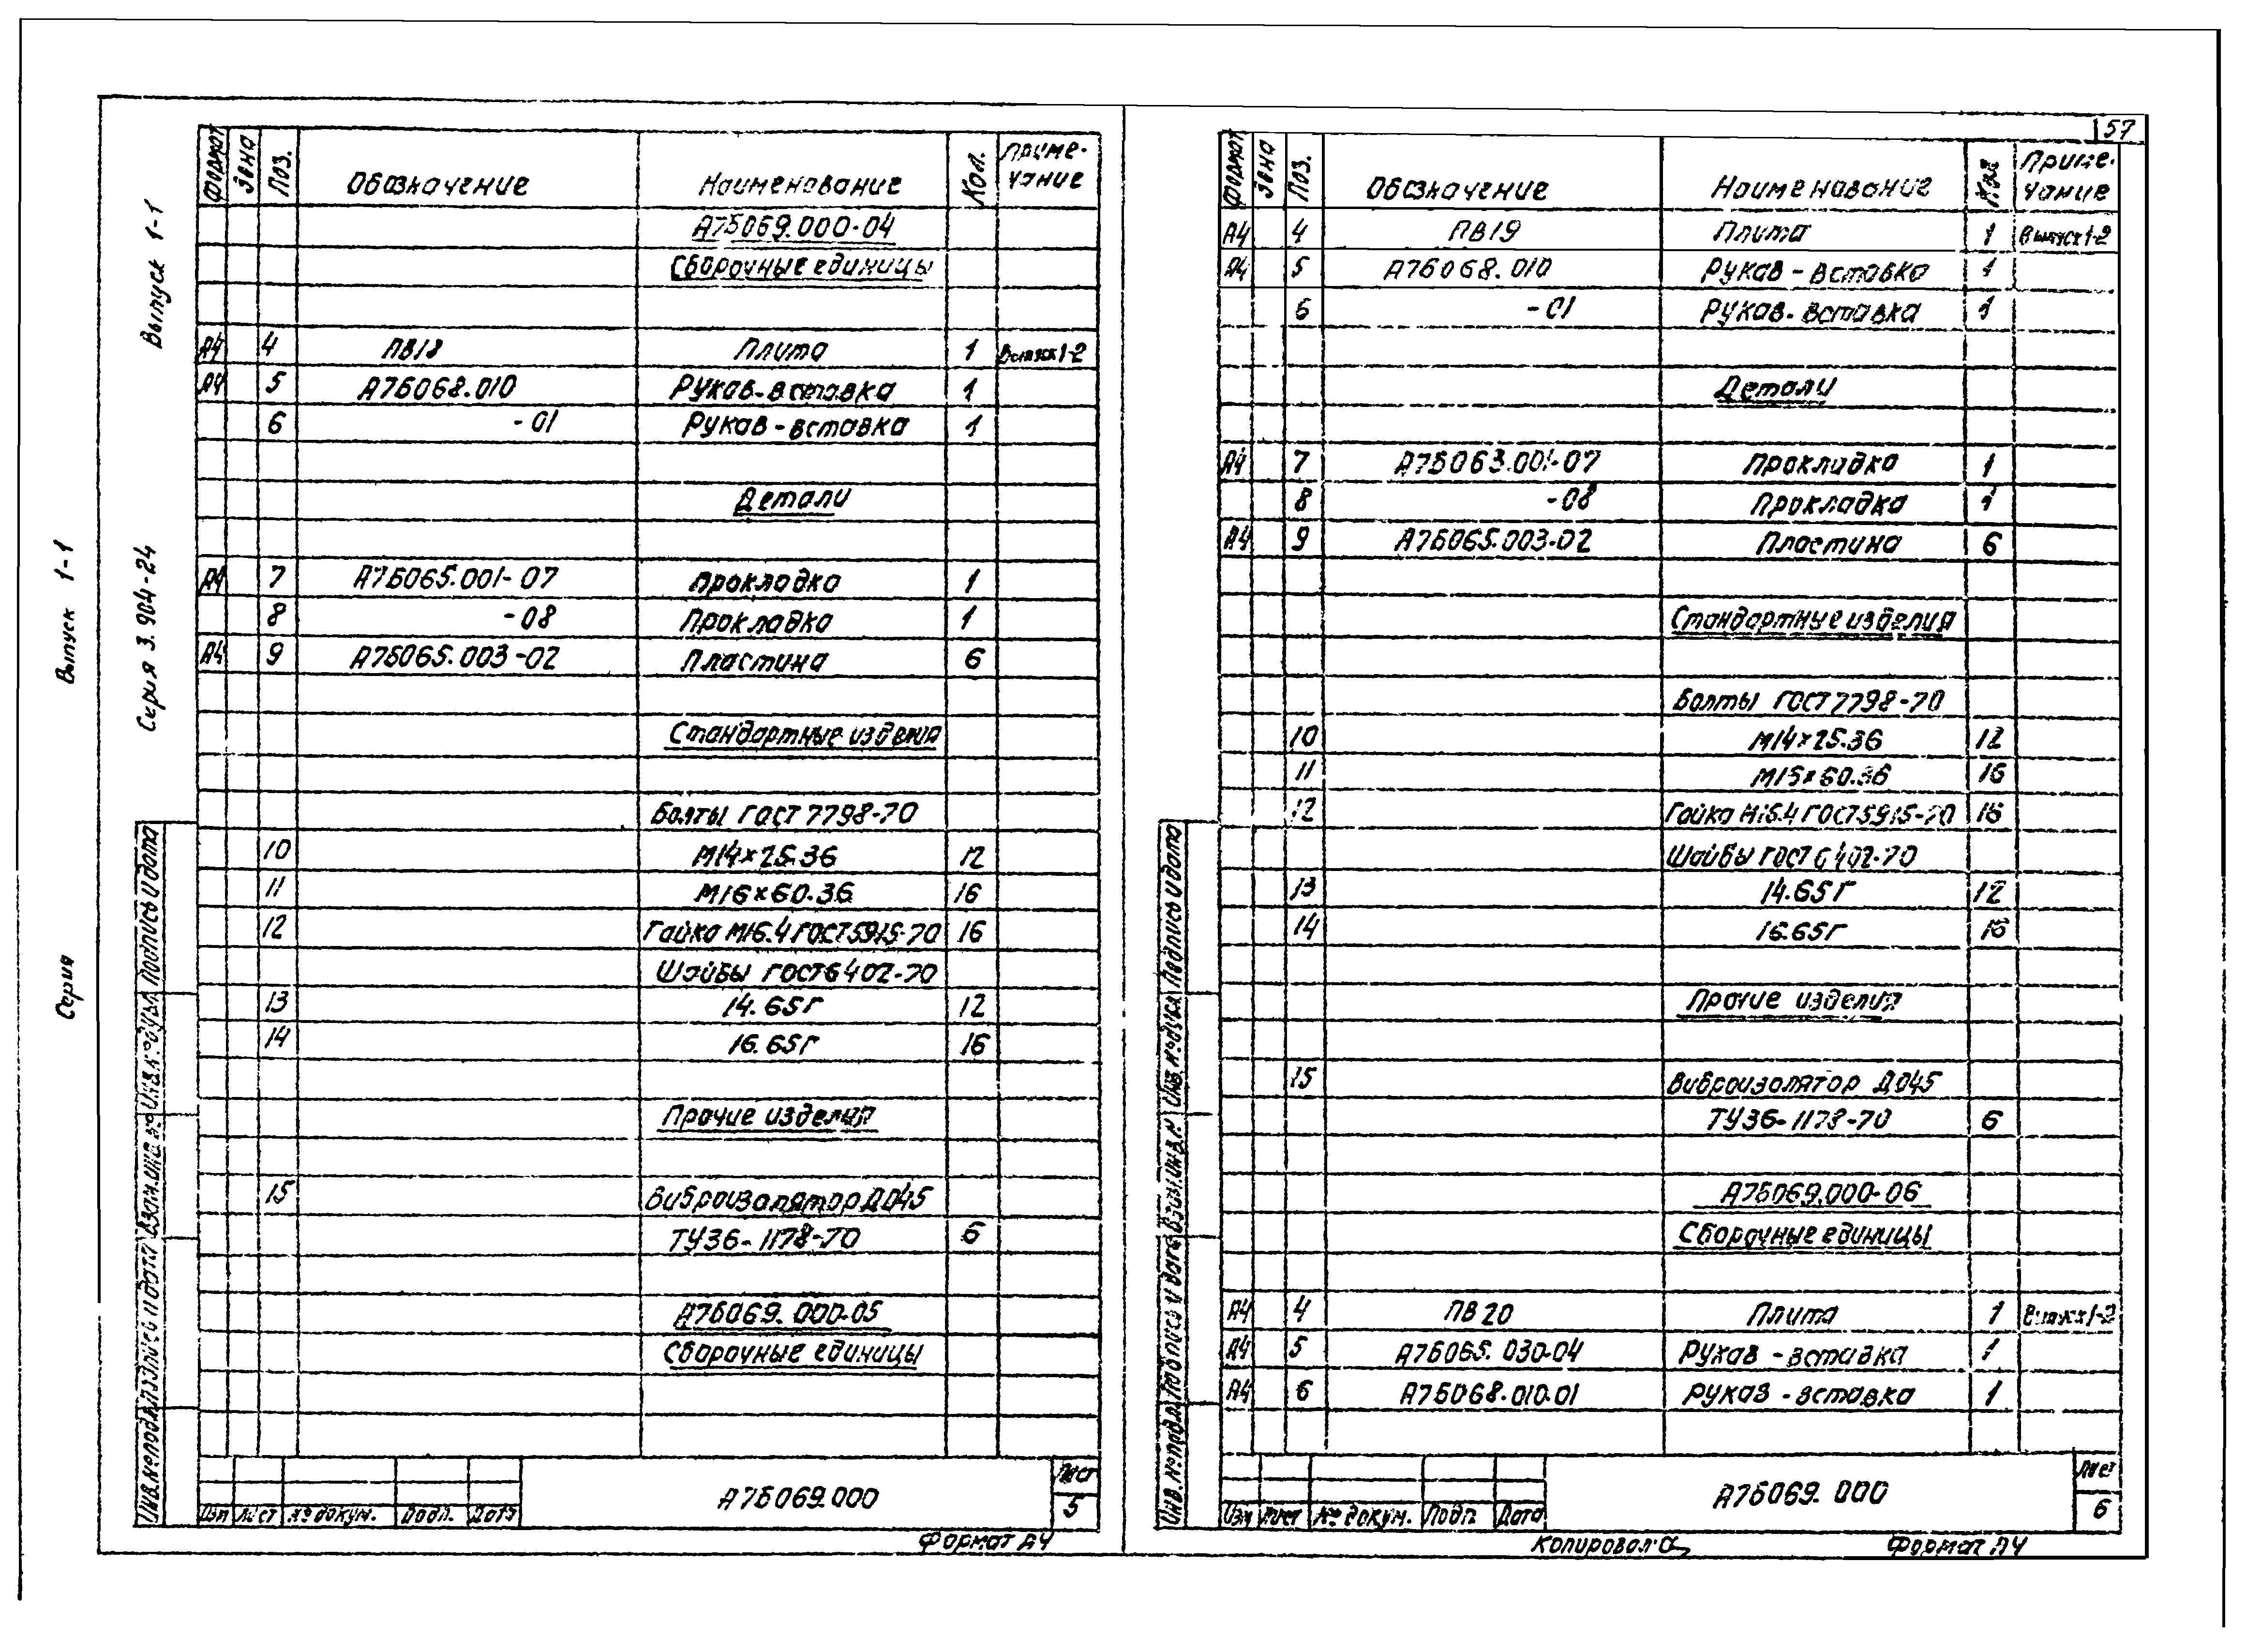 57
Выпуск 1-1
Серия
Выпуск 1-1
Серия 3.904-24
Формат Зона Поз. Обозначение Наименование Кол. Приме-чание
А7Б069.000-04
Сборочные единицы
А4 4 ПВ18 Плита 1 Выпуск 1-2
А4 5 А7Б068.010 Рукав-вставка 1
6 -01 Рукав-вставка 1
Детали
А4 7 А7Б065.001-07 Прокладка 1
8 -08 Прокладка 1
А4 9 А7Б065.003-02 Пластина 6
Стандартные изделия
Болты ГОСТ 7798-70
10 М14×25.36 12
11 М16×60.36 16
12 Гайка М16.4 ГОСТ 5915-70 16
Шайбы ГОСТ 6402-70
13 14.65Г 12
14 16.65Г 16
Прочие изделия
15 Виброизолятор ДО45
ТУ36-1178-70 6
А7Б069.000-05
Сборочные единицы
Изм Лист № докум. Подп. Дата
А7Б069.000
Лист
5
Формат А4
Инв.№подл. Подпись и дата Взам.инв.№ Инв.№дубл. Подпись и дата
Формат Зона Поз. Обозначение Наименование Кол. Приме-чание
А4 4 ПВ19 Плита 1 Выпуск 1-2
А4 5 А7Б068.010 Рукав-вставка 1
6 -01 Рукав-вставка 1
Детали
А4 7 А7Б063.001-07 Прокладка 1
8 -08 Прокладка 1
А4 9 А7Б065.003-02 Пластина 6
Стандартные изделия
Болты ГОСТ 7798-70
10 М14×25.36 12
11 М16×60.36 16
12 Гайка М16.4 ГОСТ 5915-70 16
Шайбы ГОСТ 6402-70
13 14.65Г 12
14 16.65Г 16
Прочие изделия
15 Виброизолятор ДО45
ТУ36-1178-70 6
А7Б069.000-06
Сборочные единицы
А4 4 ПВ20 Плита 1 Выпуск 1-2
А4 5 А7Б065.030-04 Рукав-вставка 1
А4 6 А7Б068.010.01 Рукав-вставка 1
Изм Лист № докум. Подп. Дата
А7Б069.000
Лист
6
Копировал:
Формат А4
Инв.№подл. Подпись и дата Взам.инв.№ Инв.№дубл. Подпись и дата